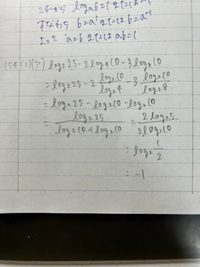 log a b = 1 または
b = a⁻¹ または
a = b または ab = 1
154 (1) (ア) log₂25 - 2log₄10 - 3log₈10
= log₂25 - 2 log₂10 / log₂4 - 3 log₂10 / log₂8
= log₂25 - log₂10 - log₂10
= log₂25 / log₂10 + log₂10 = 2log₂5 / 2log₂10
= log₂ 1/2
= -1